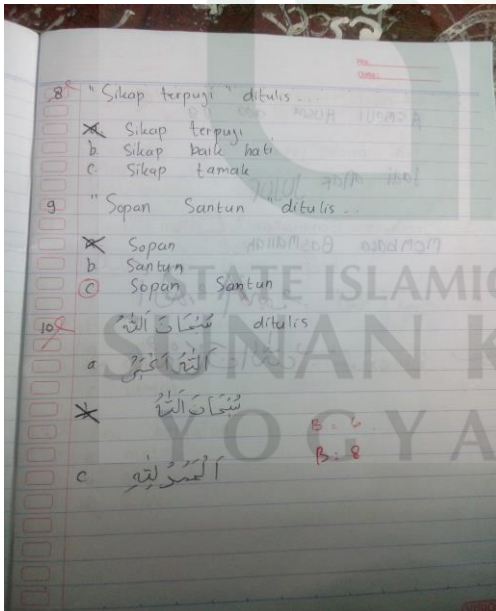 No.
Date:
8 "Sikap terpuji" ditulis...
a. Sikap terpuji
b. Sikap baik hati
c. Sikap tamak
9 "Sopan Santun ditulis...
a Sopan
b Santun
c Sopan Santun
10 سُبْحَانَ اَللّٰهُ ditulis
a اَللّٰهُ اَكْبَرُ
b سُبْحَانَ اَللّٰهُ
B = 6
B = 8
c اَلْحَمْدُ لِلّٰهِ
STATE ISLAMIC
SUNAN K
YOGYA